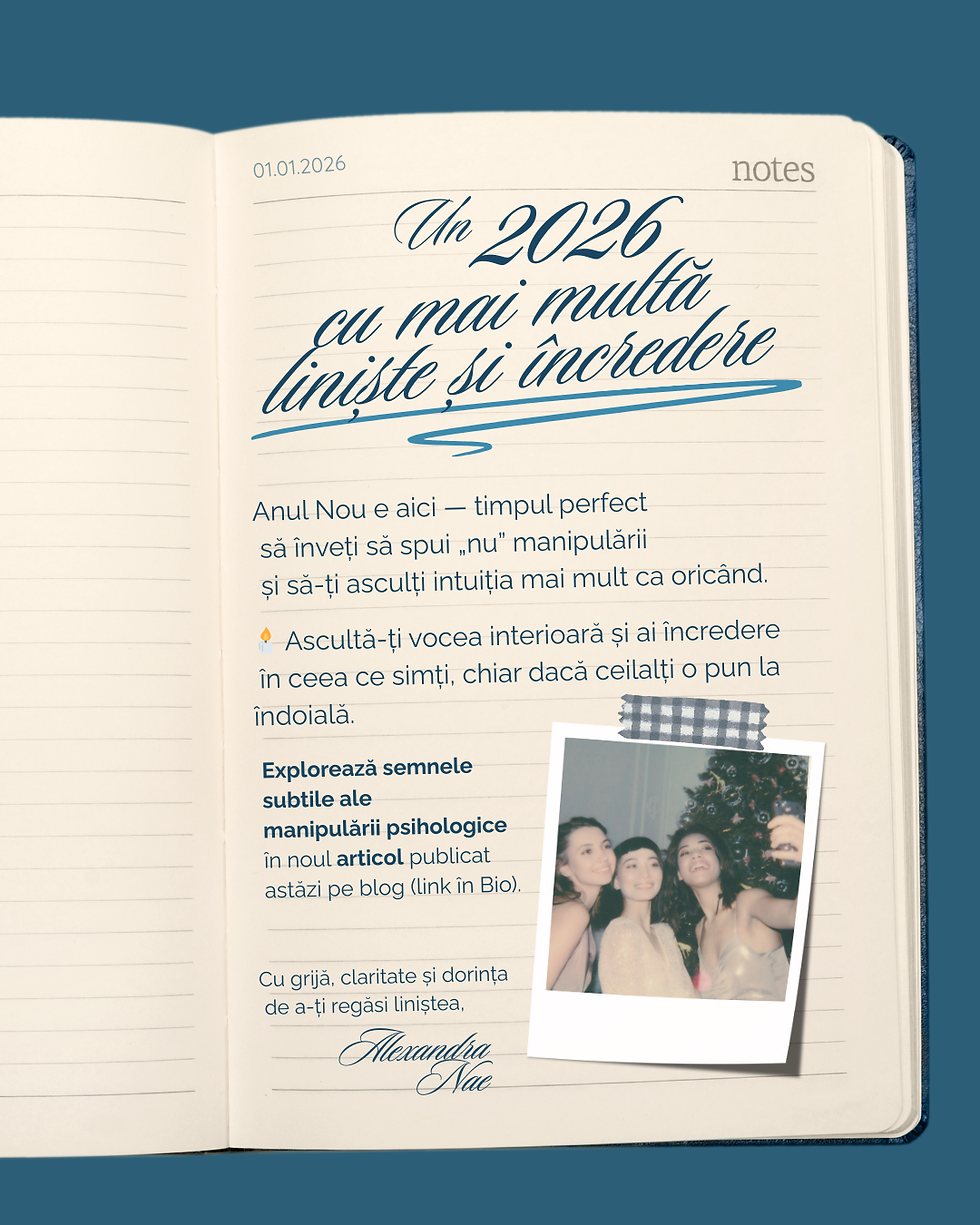 01.01.2026
notes
Un 2026
cu mai multă
liniște și încredere
Anul Nou e aici — timpul perfect
să înveți să spui „nu” manipulării
și să-ți asculți intuiția mai mult ca oricând.
🕯️ Ascultă-ți vocea interioară și ai încredere
în ceea ce simți, chiar dacă ceilalți o pun la
îndoială.
Explorează semnele
subtile ale
manipulării psihologice
în noul articol publicat
astăzi pe blog (link în Bio).
Cu grijă, claritate și dorința
de a-ți regăsi liniștea,
Alexandra
Nae